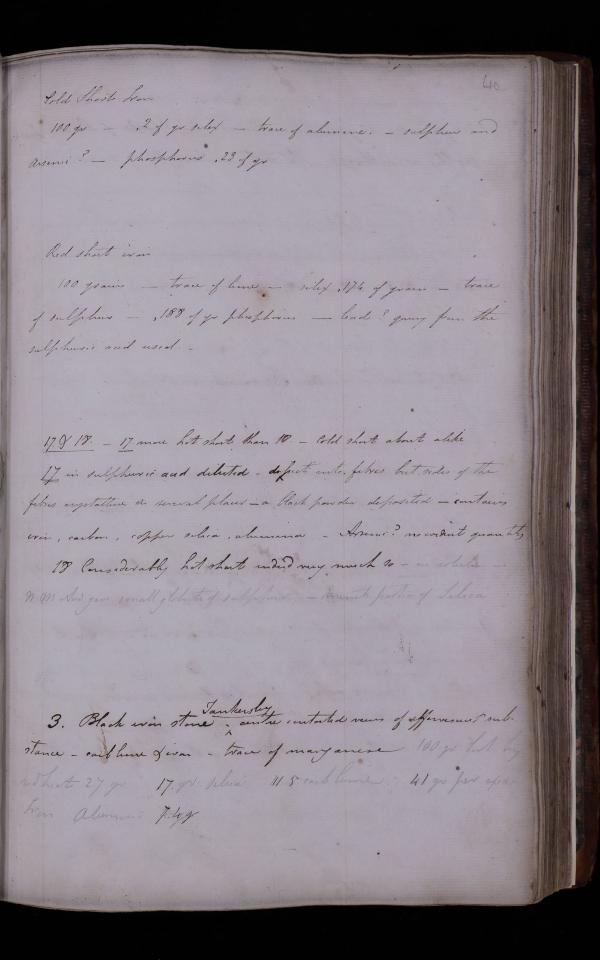 40
Cold Short Iron
100 gr — .2 of gr silex — trace of alumine. — sulphur and
Arsenic? — phosphorus .23 of gr
Red short iron
100 grains — trace of lime — silex .174 of grain — trace
of sulphur — .188 of gr phosphorus — lead? from the
sulphuric acid used —
17 & 18 — 17 more hot short than 18 — Cold short about alike
17 in sulphuric acid diluted — into fibres but sides of the
fibres crystalline in several places — a black powder deposited — contains
iron, carbon, copper silica, alumina — Arsenic? no quantity
18 Considerably hot short indeed very much so —
N M Acid gave small globule of sulphur — minute portion of Silica
Tankersley
3. Black iron stone ^ centre contorted veins of effervescent sub-
stance — carb lime & iron — trace of manganese 100 gr lost by
red heat 27 gr 17 gr silica 11.5 carb lime 41 gr per
Iron Alumina 7.4 gr